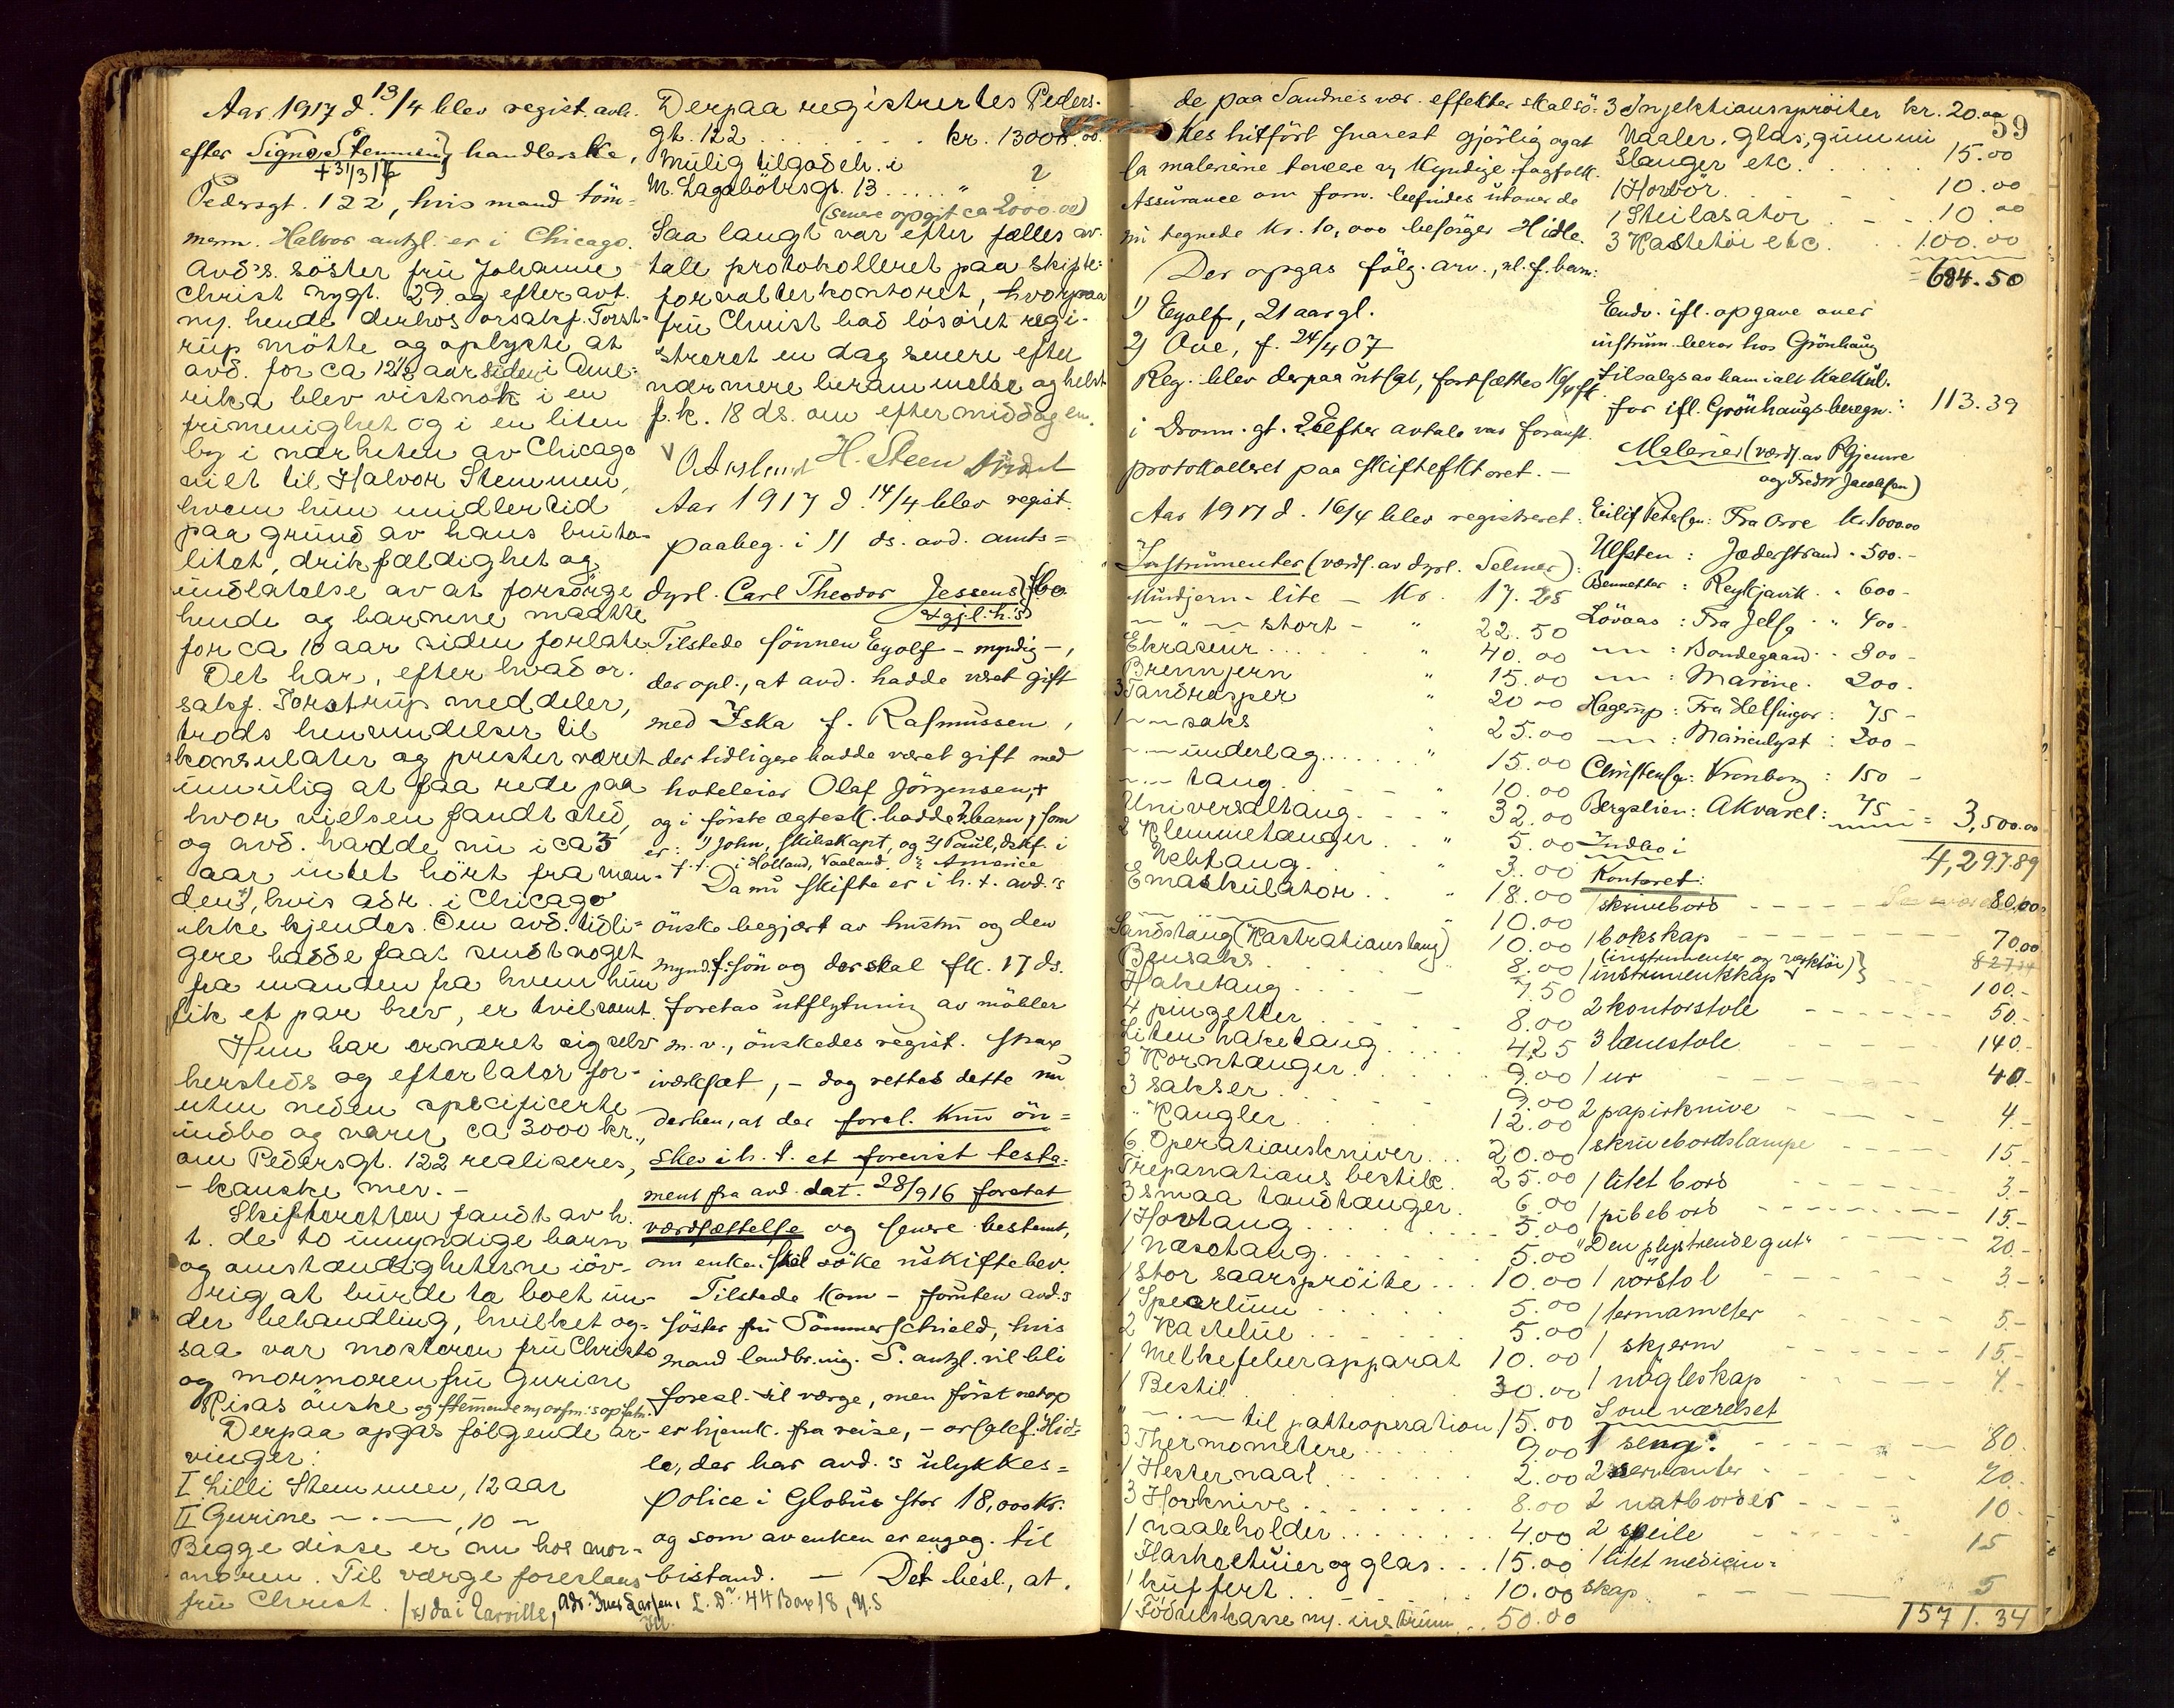 Aar 1917 d. 13/4 blev regist. avh.
efter Signe Stemmen, handlerske,
+ 31/3 17
Pedersgt. 122, hvis mand töm-
merm. Halvor antgl. er i Chicago.
Avd's. söster frü Johanne
Christ nygt. 29 og efter avt.
m. hende derhos orsakf. Torst-
rüp mötte og oplyste at
avd. for ca 12½ aar siden i Ame-
rika blev vistnok i en
frimenighet og i en liten
by i nærheten av Chicago
viet til Halvor Stemmen,
hvem hün imidlertid
paa gründ av hans brüta-
litet, drikfældighet og
ündlatelse av at forsörge
hende og barnene maatte
for ca 10 aar siden forlate.
Det har, efter hvad or-
sakf. Torstrüp meddeler,
trods henvendelser til
konsülater og prester været
ümülig at faa rede paa
hvor vielsen fandt sted,
og avd. hadde nü i ca 5
aar intet hört fra man-
den x), hvis adr. i Chicago
ikke kjendes. Den avd. tidli-
gere hadde faat sendt noget
fra manden fra hvem hün
fik et par brev, er tvilsomt.
Hün har ernæret sig selv
hersteds og efterlater for-
üten neden specificerte
indbo og varer ca 3000 kr.,
om Pedersgt. 122 realiseres,
- kanske mer. -
Skifteretten fandt av h.
t. de to ümyndige barn
og omstændigheterne iöv-
rig at bürde ta boet ün-
der behandling, hvilket og-
saa var mosteren frü Christs
og mormoren frü Gürine
Risas önske og stemmende m. orsfm.'s opfatn.
Derpaa opgas fölgende ar-
vinger:
I Lilli Stemmen, 12 aar
II Gürine — " —, 10 —
Begge disse er nü hos mor-
moren. Til værge foreslaaes
frü Christ. / x) da i Earville, adr. Iver Larsen, L. Dr. 44 Box 18, U.S
Ill.
Derpaa registrertes Peders-
gt. 122 . . . . . . . kr. 13000.00
Mülig tilgodeh. i
M. Lagabötrsgt. 13 . . . . . " ?
(senere opgit ca 2000.00)
Saa langt var efter fælles av-
tale protokolleret paa skifte-
forvalterkontoret, hvorpaa
frü Christ bad lösöret regi-
streret en dag senere efter
nærmere berammelse og helst
f.k. 18 ds. om eftermiddagen.
H. Steen
Aar 1917 d. 14/4 blev regist.
paabeg. i 11 ds. avd. amts-
dyrl. Carl Theodor Jessens bo
+ gjl. h. s.
Tilstede sönnen Eyolf - myndig -,
der opl., at avd. hadde været gift
med Iska f. Rasmüssen,
der tidligere hadde været gift med
hoteleier Olaf Jörgensen, +
og i förste ægtesk. hadde 2 barn, som
er: 1) John, skibskapt, og 2) Paul, dskf. i
f. t. i Holland, Vaaland. " America
Da nü skifte er i h. t. avd.'s
önske begjært av hüstrü og den
mynd. sön og der skal fk. 17 ds.
foretas ütflytning av möbler
m. v., önskedes regist. strax
iverksat, - dog rettes dette nü
derhen, at der forel. kün ön-
skes i h. t. et forevist testa-
ment fra avd. dat. 28/9 16 foretat
værdsættelse og senere bestemt,
om enken skal söke üskiftebev.
Tilstede kom - forüten avd.'s
söster frü Sommerschield, hvis
mand landbr.ing. S. antgl. vil bli
foresl. til værge, men först netop
er hjemk. fra reise, - orsakf. Hid-
le, der har avd.'s ülykkes-
police i Globüs stor 18,000 kr.
og som av enken er engag. til
bistand. — Det besl., at
59
de paa Sandnes vær. effekter skal sö-
kes hitfört snarest gjörlig og at
la malerierne taxere av kyndige fagfolk.
Assürance om forn. befindes ütover de
nü tegnede kr. 10,000 besörger Hidle.
Der opgas fölg. arv., nl. f. barn:
1) Eyolf, 21 aar gl.
2) Ove, f. 24/4 07
Reg. blev derpaa ütsat, fortsættes 16/4 ft.
i Dronn. gt. 22 efter avtale var foranst.
protokolleret paa skiftefktoret. —
Aar 1917 d. 16/4 blev registreret:
Instrümenter (værds. av dyrl. Selmer):
Mündjern - lite - Kr. 17.25
— " — stort - " 22.50
Ekraseür . . . . . " 40.00
Brennjern " 15.00
3 Tandrasper " 20.00
1 — " — saks " 25.00
— " — ünderlag . . . . " 15.00
— " — tang . . . . " 10.00
Universaltang . . . " 32.00
2 Klemmetænger . . " 5.00
Nebtang . . . " 3.00
Emaskülator . . " 18.00
10.00
Tandstang (Kastrationstang) 10.00
Bensaks . . . . 8.00
Haketang . . . . 7.50
4 pinzetter . . . . 8.00
Liten haketang . . . . 4.25
3 Korntænger . . . . 9.00
3 sakser . . . . 9.00
" Kangler . . . . 12.00
6 Operationskniver . . . 20.00
Trepanations bestik . 25.00
3 smaa tandtænger . 6.00
1 Hovtang . . . . 5.00
1 Næsetang . . . . 5.00
1 stor saarspröite . . . 10.00
1 Specülüm . . . . 5.00
2 Katetüe . . . . 5.00
1 Melkefeberapparat 10.00
1 Bestik . . . . 30.00
" — " — til patteoperation 15.00
3 Thermometere . . . . 9.00
1 Hesternaal . . . . 2.00
3 Hovknive . . . . 8.00
1 naaleholder . . . . 4.00
Harketüier og glas . . . 15.00
1 küffert . . . . 10.00
1 Födselskasse m. instrüm. . . 50.00
3 Injektionsspröiter kr. 20.00
Naaler, glas, gümmi
slanger etc. . . . 15.00
1 Hovbör . . . . 10.00
1 Steilasator . . . . 10.00
3 Kastetöi etc. . . . 100.00
= 684.50
Endv. ifl. opgave over
instrüm. beror hos Grönhaug
tilsalgs av ham ialt kalkül.
for ifl. Grönhaugs beregn.: 113.39
Malerier (værds. av P. Gjemre
og Fredr. Jacobsen)
Eilif Peterssen: Fra Orre kr. 1000.00
Ulfsten: Jæderstrand " 500.-
Bennetter: Reykjavik " 600 -
Lövaas: Fra Jelsa " 400 -
— " — : Bondegaard " 300 -
— " — : Marine " 200 -
Hagerüp: Fra Helsingör: 75 -
— " — : Marienlyst: 200 -
Christensen: Kronborg: 150 -
Bergslien: Akvarel: 75 — = 3,500.00
4,297.89
Indbo i
Kontoret:
1 skrivebord - - - - 80.00
1 bokskap - - - - 70.00
(instrümenter og verktöi)
1 instrümentskap - - - 100.-
2 kontorstole - - - - 50.-
3 lænestole - - - - 140.-
1 ur - - - - 40.-
2 papirknive - - - - 4.-
1 skrivebordslampe - - - - 15.-
1 litet bord - - - - 3.-
1 pibebord - - - - 15.-
"Den plystrende gut" - - - - 20.-
1 rörstol - - - - 3.-
1 termometer - - - - 5.-
1 skjerm - - - - 15.-
1 nögleskap - - - - 4.-
Soveværelset
1 seng: - - - - 80.
2 servanter - - - - 20.
2 natborder - - - - 10.
2 speile - - - - 15
1 litet medicin-
skap - - - - 5
1571.34